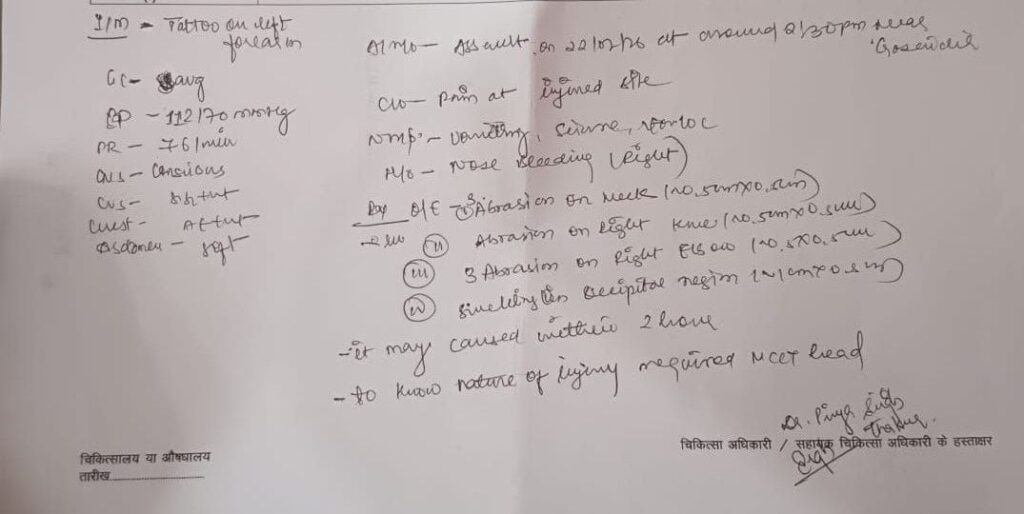 I/M - Tattoo on left
forearm
GC - avg
BP - 112/70 mmHg
PR - 76/min
CNS - Conscious
CVS - S1S2
Chest -
Abdomen - soft
A/H/O - Assault on 22/02/26 at around 2/30pm near
C/O - Pain at injured site
- vomiting, seizure,
H/O - Nose bleeding (Right)
O/E - Abrasion on Neck (~0.5cmx0.5cm)
(ii) Abrasion on Right Knee (~0.5cmx0.5cm)
(iii) 3 Abrasion on Right Elbow (~0.5x0.5cm)
(iv) Swelling on occipital region (~1cmx0.5cm)
- it may caused within 2 hour
- to know nature of injury required NCCT head
Dr. Priya Singh
Thakur
चिकित्सा अधिकारी / सहायक चिकित्सा अधिकारी के हस्ताक्षर
चिकित्सालय या औषधालय
तारीख